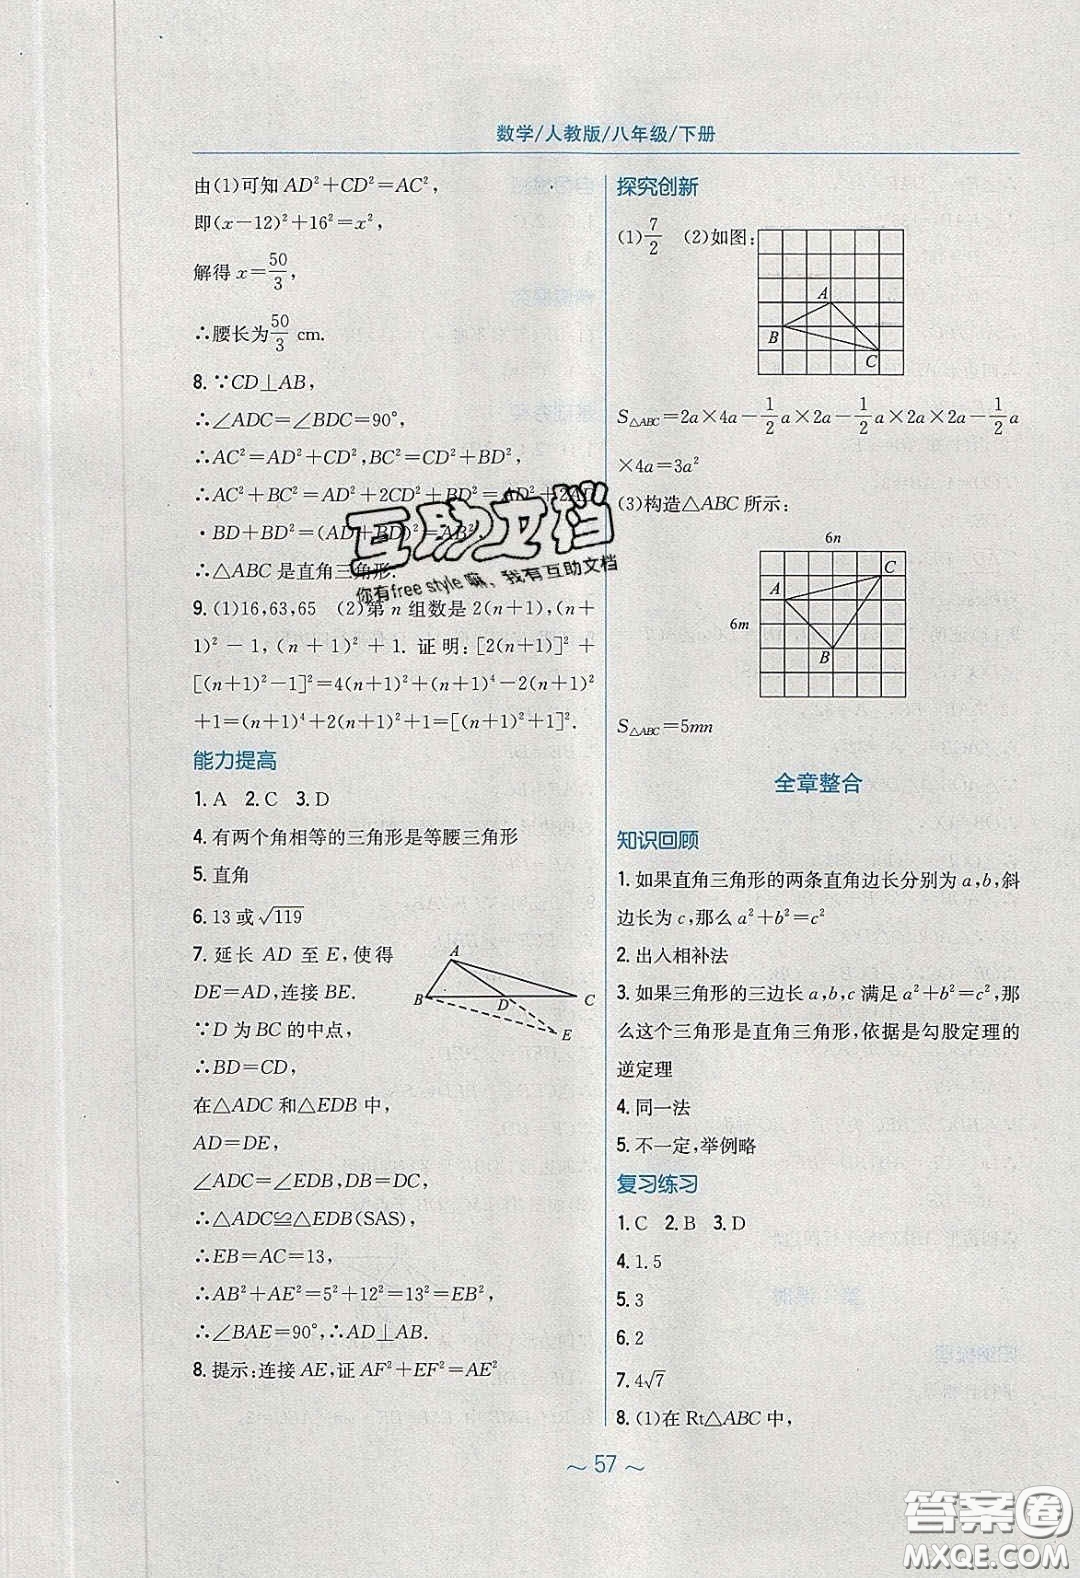 数学/人教版/八年级/下册
由(1)可知 AD²+CD²=AC²,
即(x-12)²+16²=x²,
解得 x=50/3,
∴腰长为50/3 cm.
8.∵CD⊥AB,
∴∠ADC=∠BDC=90°,
∴AC²=AD²+CD²,BC²=CD²+BD²,
∴AC²+BC²=AD²+2CD²+BD²=AD²+2AD
·BD+BD²=(AD+BD)²=AB²
∴△ABC 是直角三角形.
9.(1)16,63,65 (2)第 n 组数是 2(n+1),(n+
1)²-1,(n+1)²+1. 证明:[2(n+1)]²+
[(n+1)²-1]²=4(n+1)²+(n+1)⁴-2(n+1)²
+1=(n+1)⁴+2(n+1)²+1=[(n+1)²+1]².
能力提高
1. A 2. C 3. D
4. 有两个角相等的三角形是等腰三角形
5. 直角
6. 13 或√119
7. 延长 AD 至 E,使得
DE=AD,连接 BE.
∵D 为 BC 的中点,
∴BD=CD,
在△ADC 和△EDB 中,
AD=DE,
∠ADC=∠EDB,DB=DC,
∴△ADC≌△EDB(SAS),
∴EB=AC=13,
∴AB²+AE²=5²+12²=13²=EB²,
∴∠BAE=90°,∴AD⊥AB.
8. 提示:连接 AE,证 AF²+EF²=AE²
A
B
D
C
E
探究创新
(1)7/2 (2)如图:
A
B
C
S△ABC=2a×4a-1/2a×2a-1/2a×2a×2a-1/2a
×4a=3a²
(3)构造△ABC 所示:
6n
C
A
6m
B
S△ABC=5mn
全章整合
知识回顾
1. 如果直角三角形的两条直角边长分别为 a,b,斜
边长为 c,那么 a²+b²=c²
2. 出入相补法
3. 如果三角形的三边长 a,b,c 满足 a²+b²=c²,那
么这个三角形是直角三角形,依据是勾股定理的
逆定理
4. 同一法
5. 不一定,举例略
复习练习
1. C 2. B 3. D
4. 1.5
5. 3
6. 2
7. 4√7
8. (1)在 Rt△ABC 中,
~ 57 ~
互助文档
你有free style 嘛、我有互助文档
答案圈
MXQE.COM